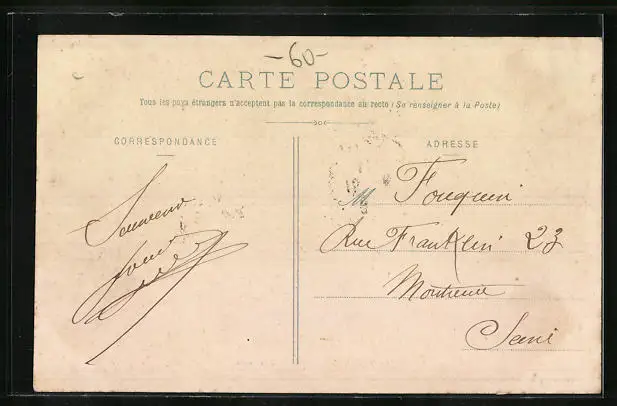 -60-
CARTE POSTALE
Tous les pays étrangers n'acceptent pas la correspondance au recto (Se renseigner à la Poste)
CORRESPONDANCE
ADRESSE
Souvenir
M Fouquin
Rue Franklin 23
Montreuil
Seine